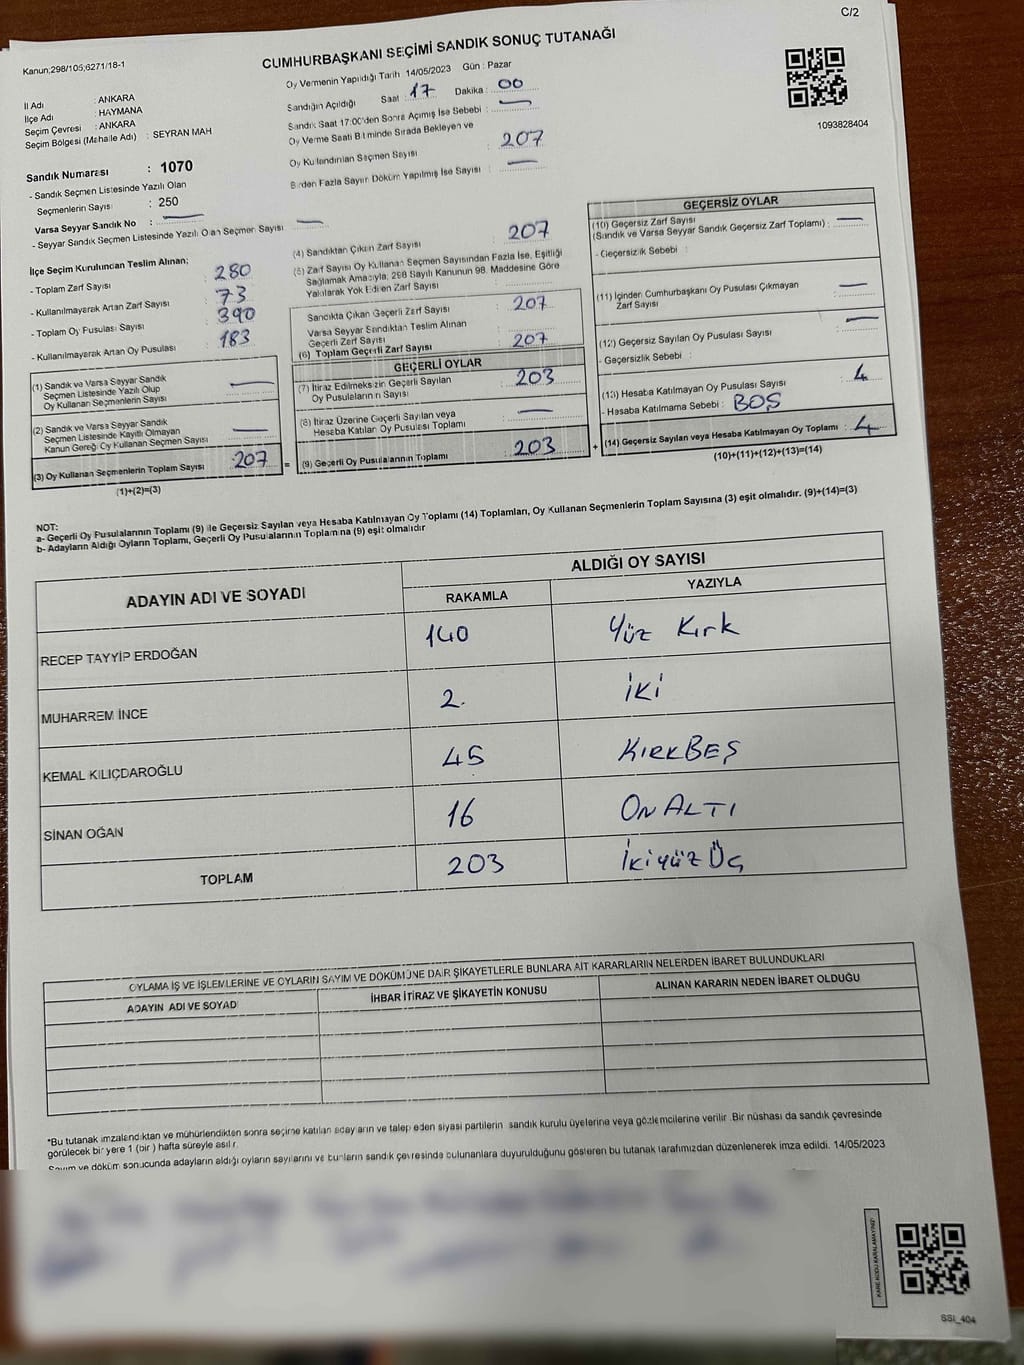 C/2
Kanun;298/105;6271/18-1
CUMHURBAŞKANI SEÇİMİ SANDIK SONUÇ TUTANAĞI
Oy Vermenin Yapıldığı Tarih 14/05/2023 Gün : Pazar
İl Adı : ANKARA
İlçe Adı : HAYMANA
Seçim Çevresi : ANKARA
Seçim Bölgesi (Mahalle Adı) : SEYRAN MAH
Sandık Numarası : 1070
- Sandık Seçmen Listesinde Yazılı Olan
Seçmenlerin Sayısı : 250
Varsa Seyyar Sandık No : —
- Seyyar Sandık Seçmen Listesinde Yazılı Olan Seçmen Sayısı : —
Sandığın Açıldığı Saat 17 Dakika : 00
Sandık Saat 17:00'den Sonra Açımış İse Sebebi : —
Oy Verme Saati Bitiminde Sırada Bekleyen ve
Oy Kullandırılan Seçmen Sayısı : 207
Birden Fazla Sayım Döküm Yapılmış İse Sayısı : —
1093828404
İlçe Seçim Kurulundan Teslim Alınan;
- Toplam Zarf Sayısı : 280
- Kullanılmayarak Artan Zarf Sayısı : 73
- Toplam Oy Pusulası Sayısı : 390
- Kullanılmayarak Artan Oy Pusulası : 183
(1) Sandık ve Varsa Seyyar Sandık
Seçmen Listesinde Yazılı Olup
Oy Kullanan Seçmenlerin Sayısı : —
(2) Sandık ve Varsa Seyyar Sandık
Seçmen Listesinde Kayıtlı Olmayan
Kanun Gereği Oy Kullanan Seçmen Sayısı : —
(3) Oy Kullanan Seçmenlerin Toplam Sayısı : 207 =
(1)+(2)=(3)
(4) Sandıktan Çıkan Zarf Sayısı : 207
(5) Zarf Sayısı Oy Kullanan Seçmen Sayısından Fazla İse, Eşitliği
Sağlamak Amacıyla; 298 Sayılı Kanunun 98. Maddesine Göre
Yakılarak Yok Edilen Zarf Sayısı :
Sandıkta Çıkan Geçerli Zarf Sayısı : 207
Varsa Seyyar Sandıktan Teslim Alınan
Geçerli Zarf Sayısı :
(6) Toplam Geçerli Zarf Sayısı : 207
GEÇERLİ OYLAR
(7) İtiraz Edilmeksizin Geçerli Sayılan
Oy Pusulalarının Sayısı : 203
(8) İtiraz Üzerine Geçerli Sayılan veya
Hesaba Katılan Oy Pusulası Toplamı : —
(9) Geçerli Oy Pusulalarının Toplamı : 203 +
GEÇERSİZ OYLAR
(10) Geçersiz Zarf Sayısı
(Sandık ve Varsa Seyyar Sandık Geçersiz Zarf Toplamı) : —
- Geçersizlik Sebebi :
(11) İçinden Cumhurbaşkanı Oy Pusulası Çıkmayan
Zarf Sayısı : —
(12) Geçersiz Sayılan Oy Pusulası Sayısı : —
- Geçersizlik Sebebi :
(13) Hesaba Katılmayan Oy Pusulası Sayısı : 4
- Hesaba Katılmama Sebebi : BOŞ
(14) Geçersiz Sayılan veya Hesaba Katılmayan Oy Toplamı : 4
(10)+(11)+(12)+(13)=(14)
NOT:
a- Geçerli Oy Pusulalarının Toplamı (9) ile Geçersiz Sayılan veya Hesaba Katılmayan Oy Toplamı (14) Toplamları, Oy Kullanan Seçmenlerin Toplam Sayısına (3) eşit olmalıdır. (9)+(14)=(3)
b- Adayların Aldığı Oyların Toplamı, Geçerli Oy Pusulalarının Toplamına (9) eşit olmalıdır
ADAYIN ADI VE SOYADI ALDIĞI OY SAYISI
RAKAMLA YAZIYLA
RECEP TAYYİP ERDOĞAN 140 Yüz Kırk
MUHARREM İNCE 2. İKİ
KEMAL KILIÇDAROĞLU 45 KIRKBEŞ
SİNAN OĞAN 16 ONALTI
TOPLAM 203 İkiyüz Üç
OYLAMA İŞ VE İŞLEMLERİNE VE OYLARIN SAYIM VE DÖKÜMÜNE DAİR ŞİKAYETLERLE BUNLARA AİT KARARLARIN NELERDEN İBARET BULUNDUKLARI
ADAYIN ADI VE SOYADI İHBAR İTİRAZ VE ŞİKAYETİN KONUSU ALINAN KARARIN NEDEN İBARET OLDUĞU
*Bu tutanak imzalandıktan ve mühürlendikten sonra seçime katılan adayların ve talep eden siyasi partilerin sandık kurulu üyelerine veya gözlemcilerine verilir .Bir nüshası da sandık çevresinde
görülecek bir yere 1 (bir ) hafta süreyle asılır.
Sayım ve döküm sonucunda adayların aldığı oyların sayılarını ve bunların sandık çevresinde bulunanlara duyurulduğunu gösteren bu tutanak tarafımızdan düzenlenerek imza edildi. 14/05/2023
KARE KODU KARALAMAYINIZ!
SSI_404